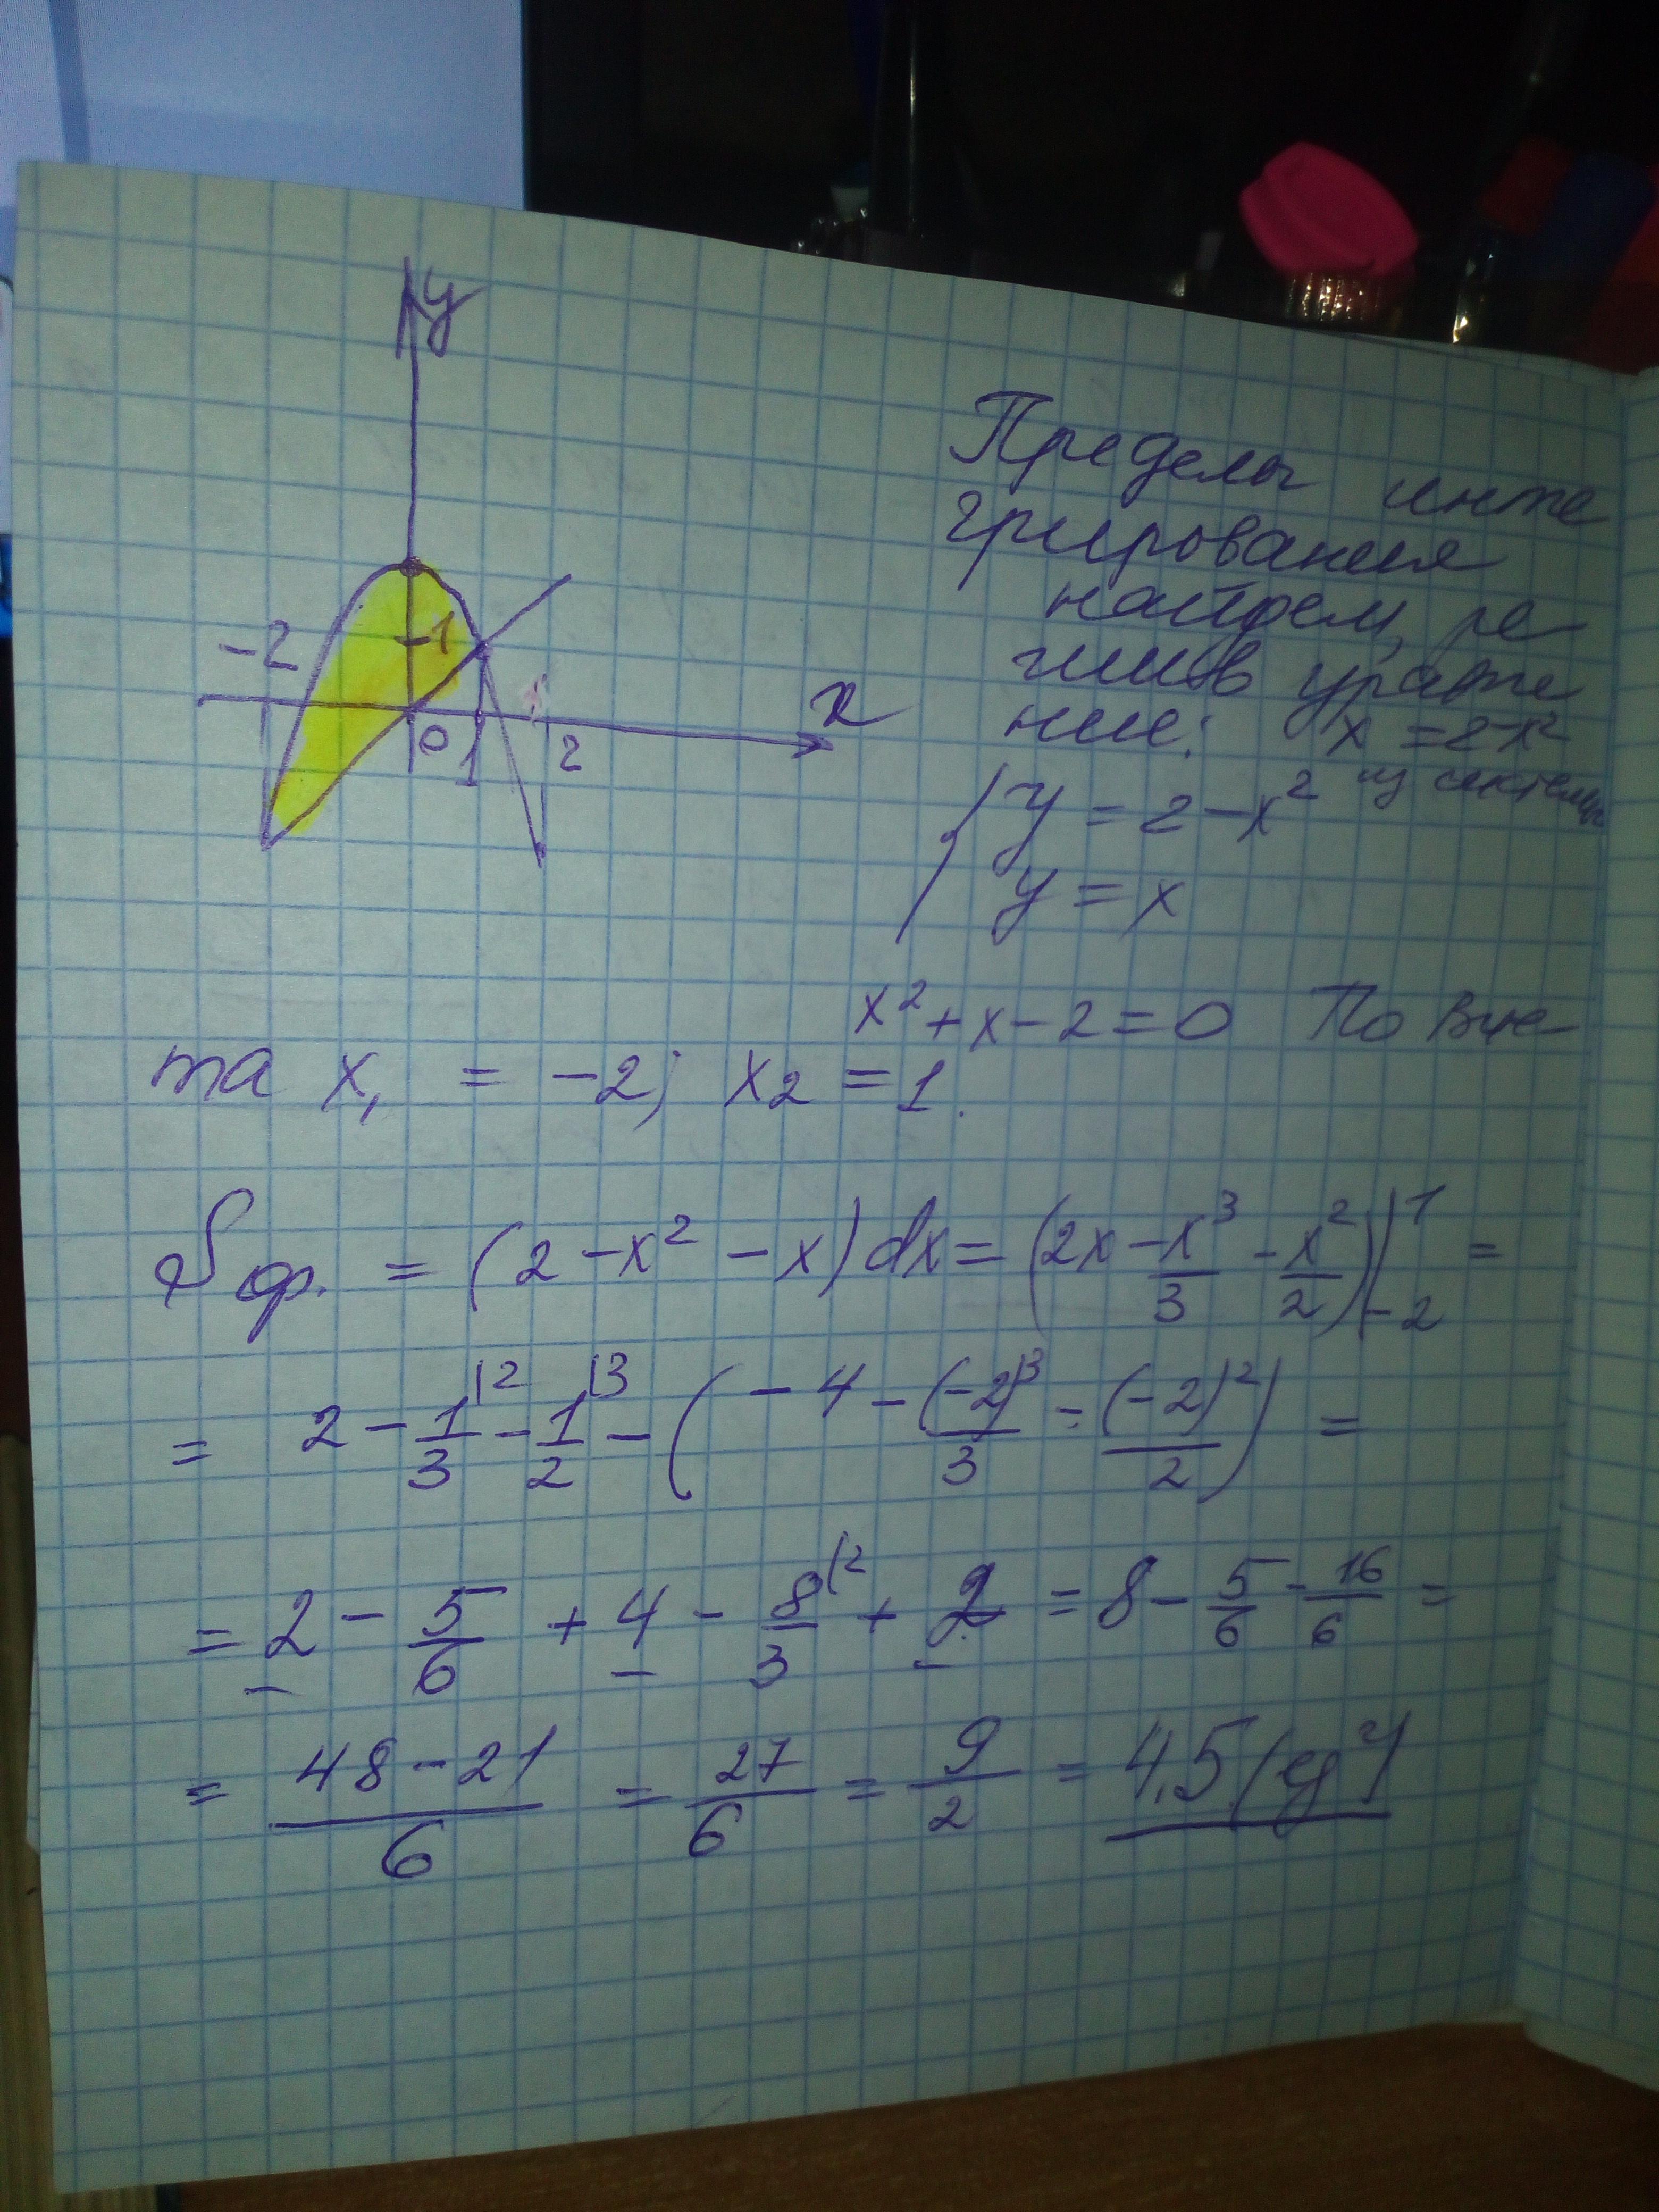 y
-2
1
x
0
1
2
Пределы инте
грирования
найдем, ре
шив уравне
ние: x = 2-x²
из системы
{ y = 2 - x²
y = x
x² + x - 2 = 0 По Вие
та x₁ = -2; x₂ = 1.
Sф. = (2 - x² - x)dx = (2x - x³/3 - x²/2)|₋₂¹ =
= 2 - 1/3|² - 1/2|³ - (-4 - (-2)³/3 - (-2)²/2) =
= 2 - 5/6 + 4 - 8/3|² + 2 = 8 - 5/6 - 16/6 =
= (48 - 21)/6 = 27/6 = 9/2 = 4,5 (ед²)